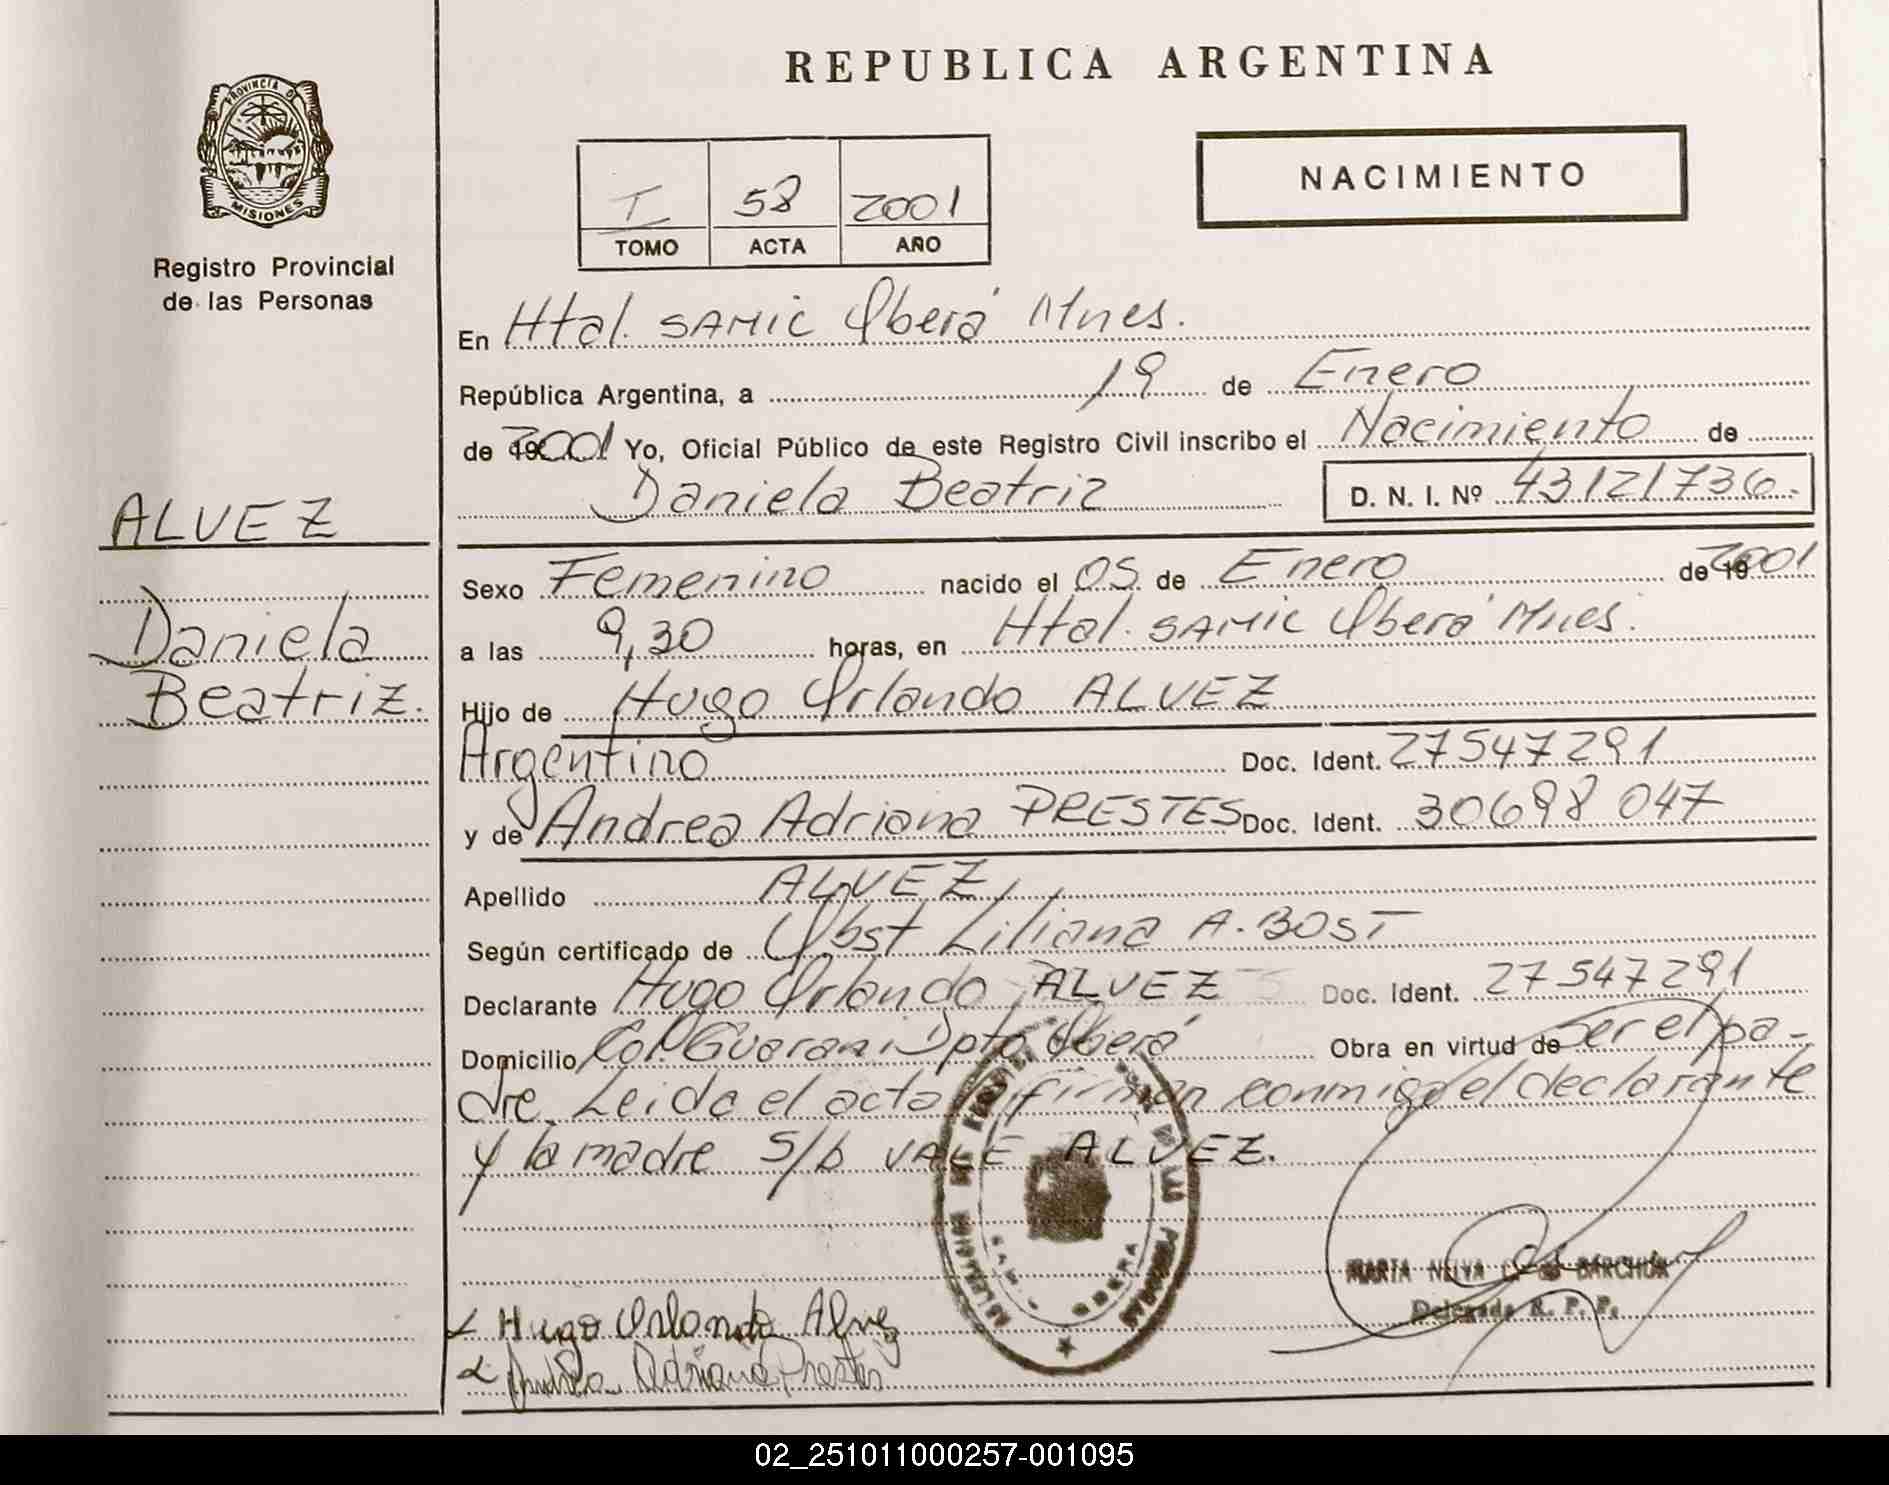 REPUBLICA ARGENTINA
PROVINCIA DE
MISIONES
Registro Provincial
de las Personas
I 58 2001
TOMO ACTA AÑO
NACIMIENTO
En Htal. SAMIC Oberá Mnes.
República Argentina, a 19 de Enero
de 2001 Yo, Oficial Público de este Registro Civil inscribo el Nacimiento de
Daniela Beatriz D. N. I. Nº 43121736.
ALVEZ
Daniela
Beatriz.
Sexo Femenino nacido el 05 de Enero de 2001
a las 9,30 horas, en Htal. SAMIC Oberá Mnes.
Hijo de Hugo Orlando ALVEZ
Argentino Doc. Ident. 27547291
y de Andrea Adriana PRESTES Doc. Ident. 30698047
Apellido ALVEZ
Según certificado de Obst Liliana A. BOST
Declarante Hugo Orlando ALVEZ Doc. Ident. 27547291
Domicilio Col. Guarani Dpto Oberá Obra en virtud de Ser el pa-
dre. Leida el acta firman conmigo el declarante
y la madre S/b VALE ALVEZ.
MARTA NELVA DE BARCHUK
Delegada R. P. P.
OBERA
Hugo Orlando Alvez
Andrea Adriana Prestes
02_251011000257-001095